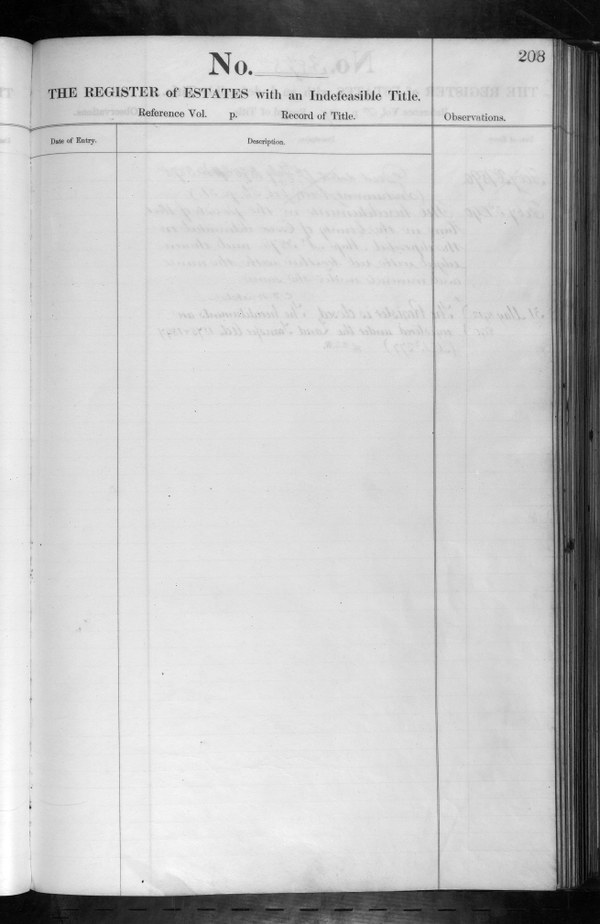 208
No.
THE REGISTER of ESTATES with an Indefeasible Title.
Reference Vol. p. Record of Title.
Observations.
Date of Entry.
Description.